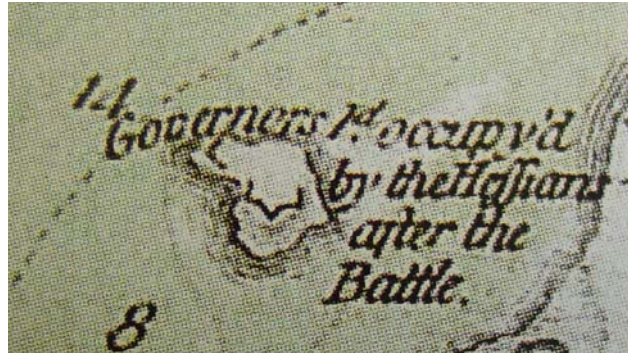 14
Governers I.ᵈ occupy'd
by the Haſsians
after the
Battle.
8